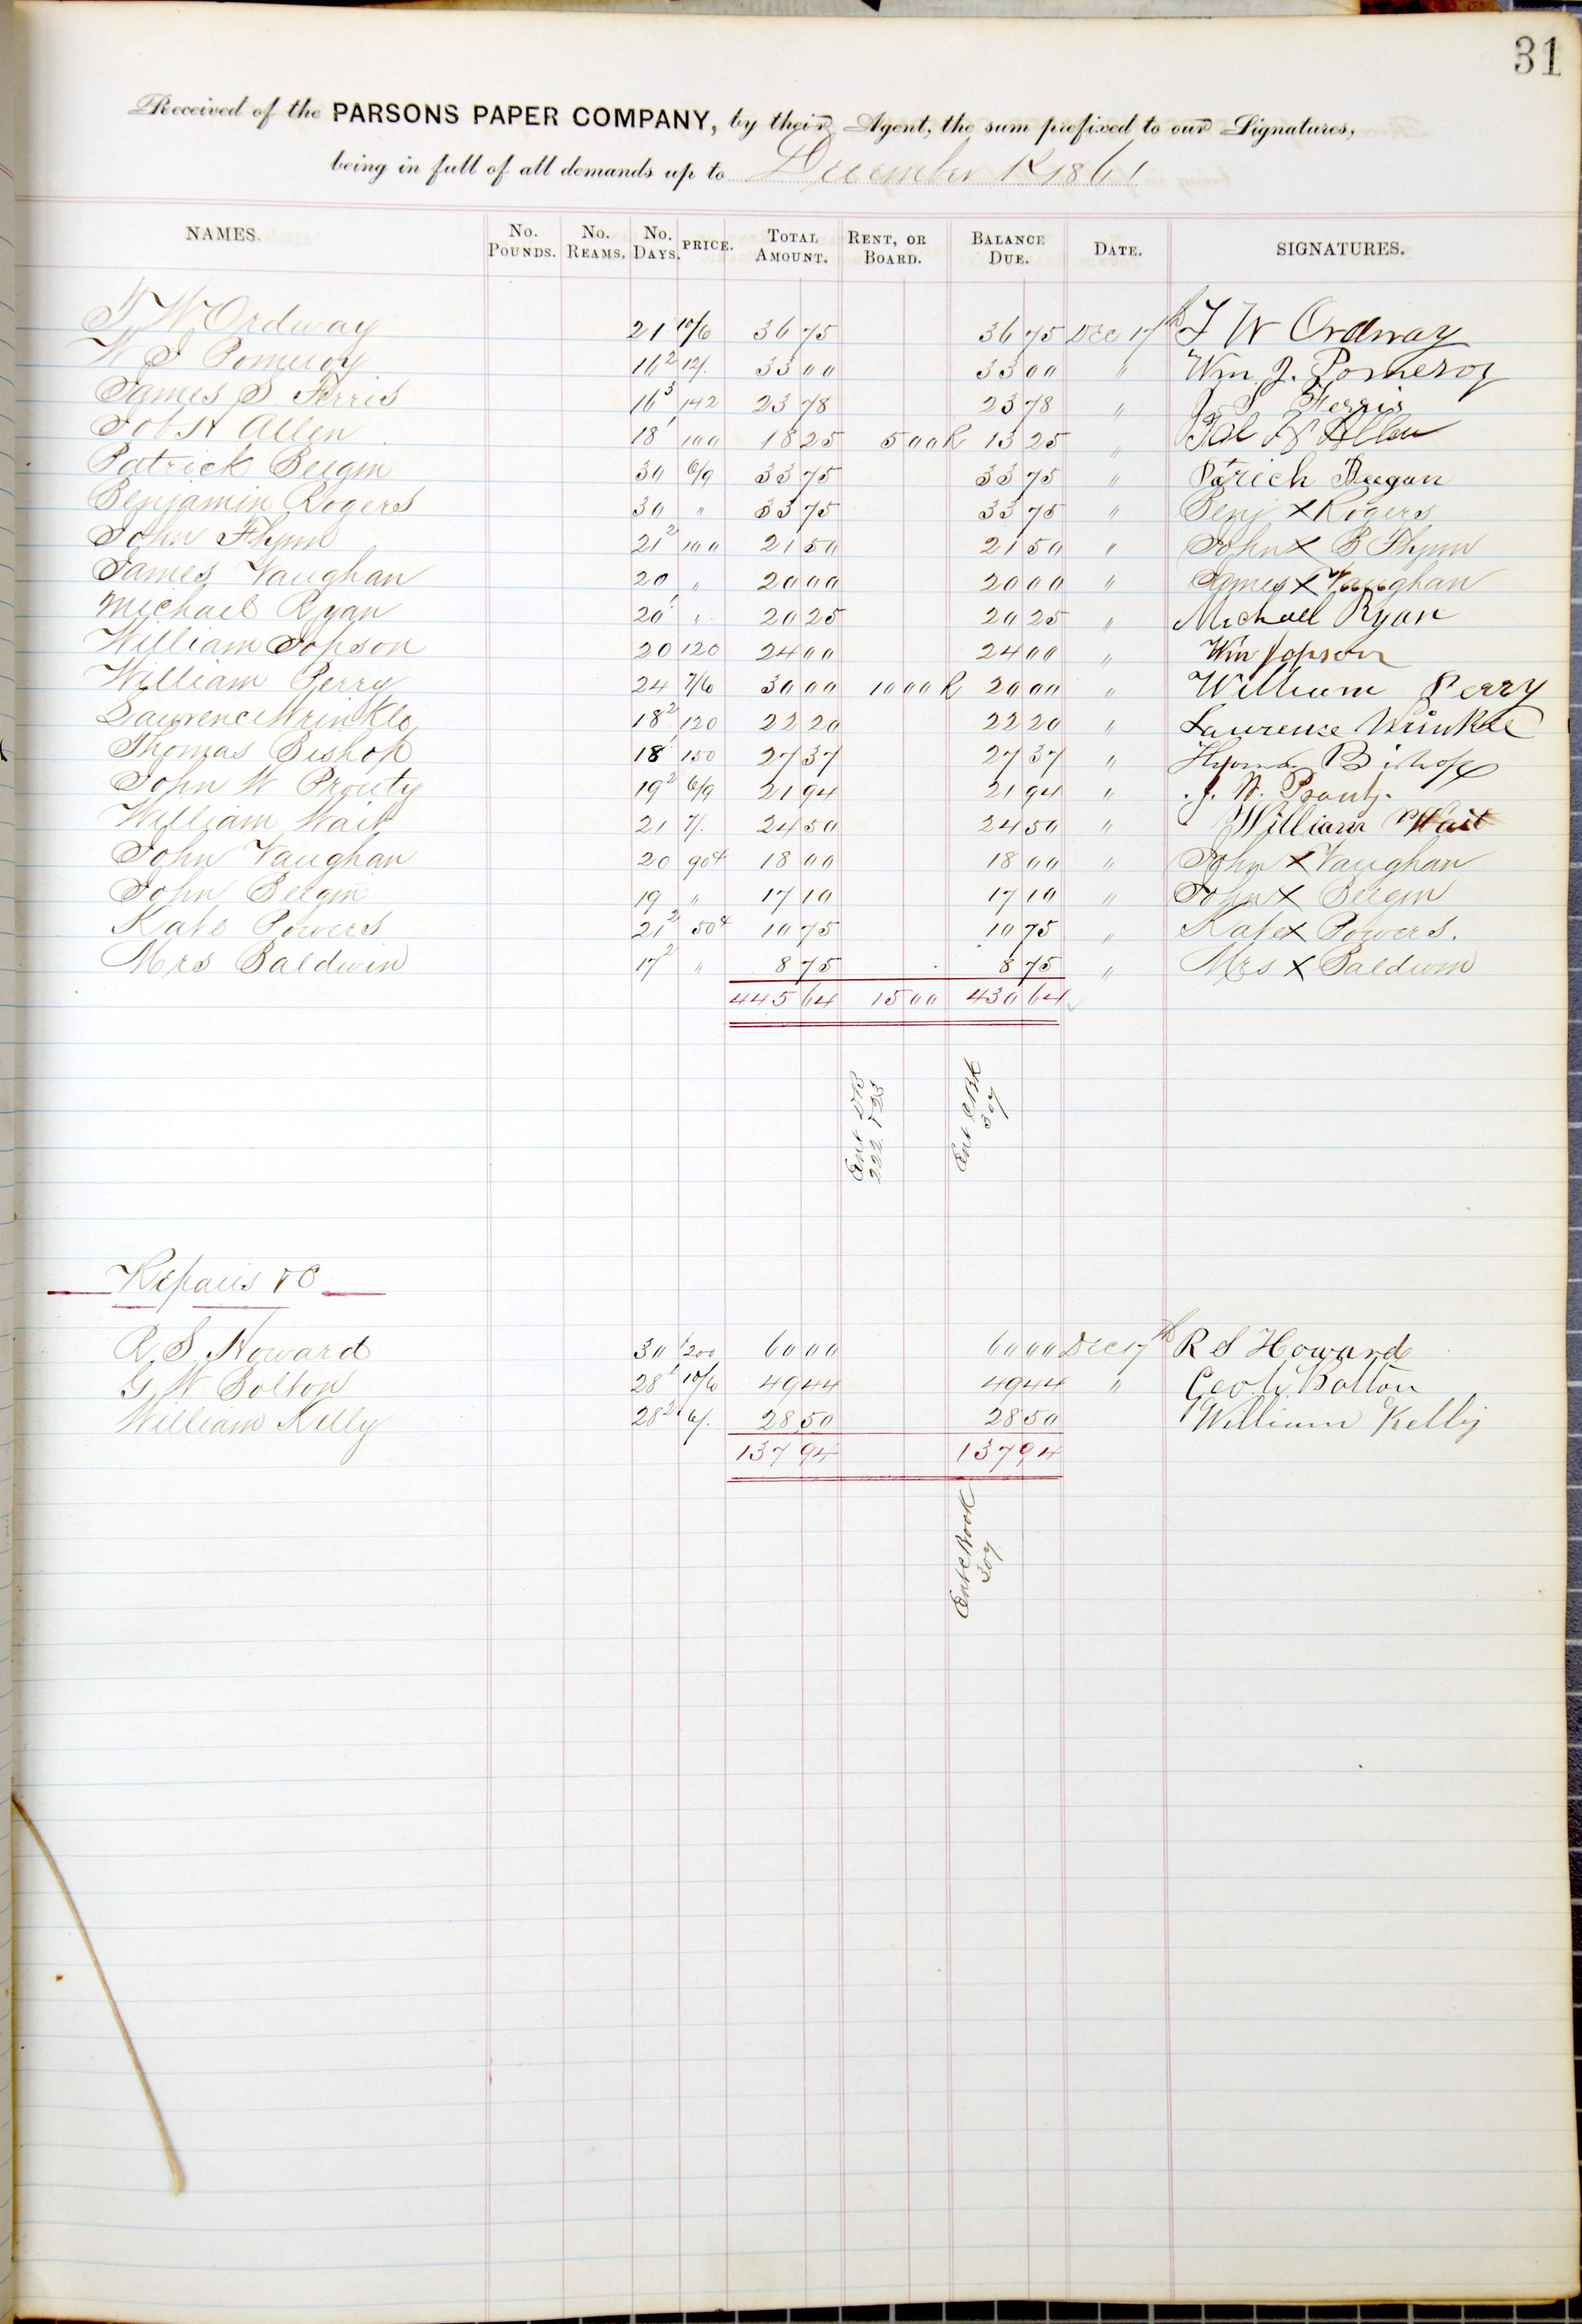 31
Received of the PARSONS PAPER COMPANY, by their Agent, the sum prefixed to our Signatures,
being in full of all demands up to December 1st 1861
NAMES. No. Pounds. No. Reams. No. Days. PRICE. Total Amount. Rent, or Board. Balance Due. Date. SIGNATURES.
T W Ordway 21 10/6 36 75 36 75 Dec 17th T W Ordway
W J Pomeroy 16 2 12/. 33 00 33 00 " Wm. J. Pomeroy
James S Ferris 16 3 142 23 78 23 78 " J. S. Ferris
Job H Allen 18 1 100 18 25 5 00 R 13 25 " Job H Allen
Patrick Beegin 30 6/9 33 75 33 75 " Patrich Beegan
Benjamin Rogers 30 " 33 75 33 75 " Benj X Rogers
John Flynn 21 2 100 21 50 21 50 " John X B Flynn
James Vaughan 20 " 20 00 20 00 " James X Vaughan
Michael Ryan 20 1 " 20 25 20 25 " Michael Ryan
William Jopson 20 120 24 00 24 00 " Wm Jopson
William Perry 24 7/6 30 00 10 00 R 20 00 " William Perry
Lawrence Wrinkle 18 2 120 22 20 22 20 " Lawrence Wrinkle
Thomas Bishop 18 1 150 27 37 27 37 " Thomas Bishop
John W Prouty 19 2 6/9 21 94 21 94 " J. W. Prouty.
William Wait 21 7/. 24 50 24 50 " William Wait
John Vaughan 20 90¢ 18 00 18 00 " John X Vaughan
John Beegin 19 " 17 10 17 10 " John X Beegin
Kate Powers 21 2 50¢ 10 75 10 75 " Kate X Powers.
Mrs Baldwin 17 2 " 8 75 8 75 " Mrs X Baldwin
445 64 15 00 430 64
Ent DB
222. 223
Ent CBk
307
Repairs &C
R. S. Howard 30 200 60 00 60 00 Dec 17th R S Howard
G W Bolton 28 1 10/6 49 44 49 44 " Geo W. Bolton
William Kelly 28 2 6/. 28 50 28 50 William Kelly
137 94 137 94
Ent C Book
307